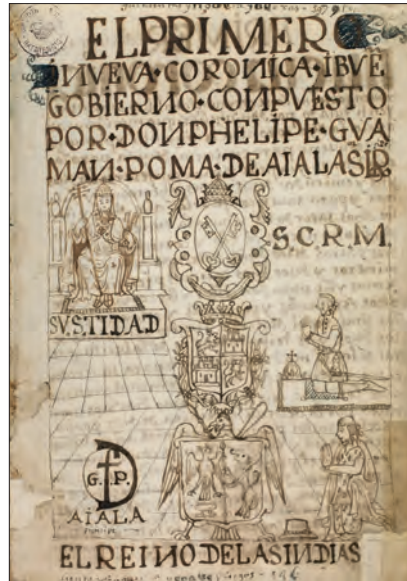 EL PRIMER
NVEVA·CORONICA·IBVE
GOBIERNO·CONPVESTO
POR·DON PHELIPE·GVA
MAN·POMA·DEAIALASIR
S.C.R.M.
SV.STIDAD
G. P.
AIALA
EL REINO DE LAS INDIAS